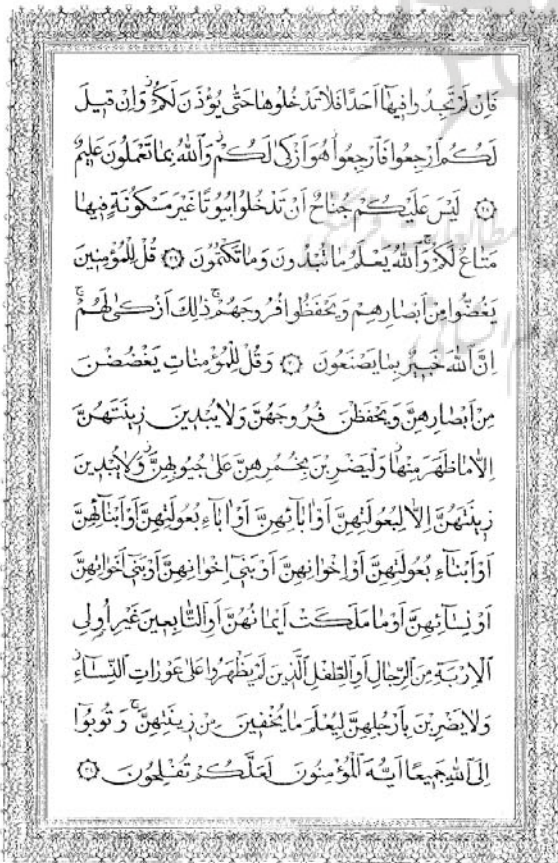 فَاِنْ لَمْ تَجِدُوا فِيهَا اَحَدًا فَلَا تَدْخُلُوهَا حَتّٰى يُؤْذَنَ لَكُمْ وَاِنْ قِيلَ
لَكُمُ ارْجِعُوا فَارْجِعُوا هُوَ اَزْكٰى لَكُمْ وَاللّٰهُ بِمَا تَعْمَلُونَ عَلِيمٌ
﴿٢٨﴾ لَيْسَ عَلَيْكُمْ جُنَاحٌ اَنْ تَدْخُلُوا بُيُوتًا غَيْرَ مَسْكُونَةٍ فِيهَا
مَتَاعٌ لَكُمْ وَاللّٰهُ يَعْلَمُ مَا تُبْدُونَ وَمَا تَكْتُمُونَ ﴿٢٩﴾ قُلْ لِلْمُؤْمِنِينَ
يَغُضُّوا مِنْ اَبْصَارِهِمْ وَيَحْفَظُوا فُرُوجَهُمْ ذٰلِكَ اَزْكٰى لَهُمْ
اِنَّ اللّٰهَ خَبِيرٌ بِمَا يَصْنَعُونَ ﴿٣٠﴾ وَقُلْ لِلْمُؤْمِنَاتِ يَغْضُضْنَ
مِنْ اَبْصَارِهِنَّ وَيَحْفَظْنَ فُرُوجَهُنَّ وَلَا يُبْدِينَ زِينَتَهُنَّ
اِلَّا مَا ظَهَرَ مِنْهَا وَلْيَضْرِبْنَ بِخُمُرِهِنَّ عَلٰى جُيُوبِهِنَّ وَلَا يُبْدِينَ
زِينَتَهُنَّ اِلَّا لِبُعُولَتِهِنَّ اَوْ اٰبَائِهِنَّ اَوْ اٰبَاءِ بُعُولَتِهِنَّ اَوْ اَبْنَائِهِنَّ
اَوْ اَبْنَاءِ بُعُولَتِهِنَّ اَوْ اِخْوَانِهِنَّ اَوْ بَنِي اِخْوَانِهِنَّ اَوْ بَنِي اَخَوَاتِهِنَّ
اَوْ نِسَائِهِنَّ اَوْ مَا مَلَكَتْ اَيْمَانُهُنَّ اَوِ التَّابِعِينَ غَيْرِ اُولِي
الْاِرْبَةِ مِنَ الرِّجَالِ اَوِ الطِّفْلِ الَّذِينَ لَمْ يَظْهَرُوا عَلٰى عَوْرَاتِ النِّسَاءِ
وَلَا يَضْرِبْنَ بِاَرْجُلِهِنَّ لِيُعْلَمَ مَا يُخْفِينَ مِنْ زِينَتِهِنَّ وَتُوبُوا
اِلَى اللّٰهِ جَمِيعًا اَيُّهَ الْمُؤْمِنُونَ لَعَلَّكُمْ تُفْلِحُونَ ﴿٣١﴾